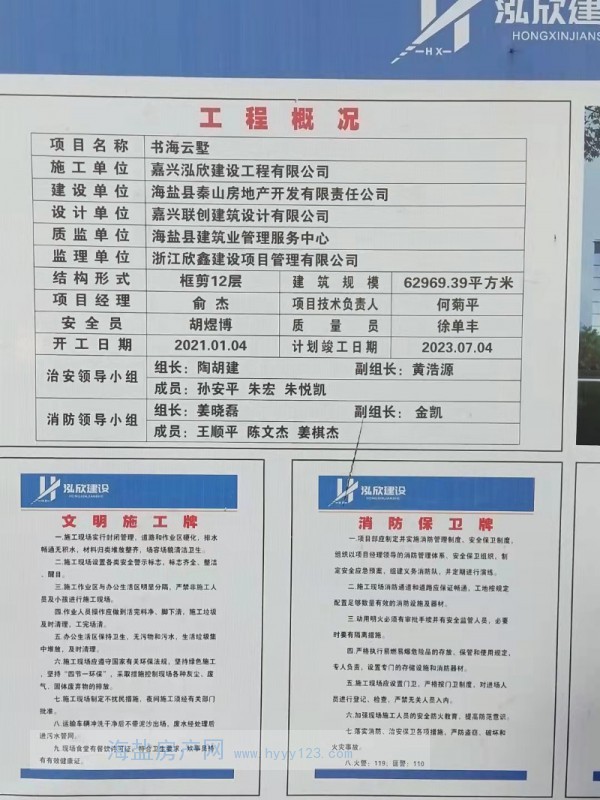 泓欣建
HONGXINJIANS
HX
工程概况
项目名称 书海云墅
施工单位 嘉兴泓欣建设工程有限公司
建设单位 海盐县秦山房地产开发有限责任公司
设计单位 嘉兴联创建筑设计有限公司
质监单位 海盐县建筑业管理服务中心
监理单位 浙江欣鑫建设项目管理有限公司
结构形式 框剪12层 建筑规模 62969.39平方米
项目经理 俞杰 项目技术负责人 何菊平
安全员 胡煜博 质量员 徐单丰
开工日期 2021.01.04 计划竣工日期 2023.07.04
治安领导小组 组长：陶胡建 副组长：黄浩源
成员：孙安平 朱宏 朱悦凯
消防领导小组 组长：姜晓磊 副组长：金凯
成员：王顺平 陈文杰 姜棋杰
泓欣建设
文明施工牌
一.施工现场实行封闭管理，道路和作业区硬化，排水
畅通无积水，材料归类堆放整齐，场容场貌清洁卫生。
二.施工现场设置各类安全警示标志，标志齐全、整洁
、醒目。
三.施工作业区与办公生活区明显分隔，严禁非施工人
员及小孩进行施工现场。
四.作业人员操作应做到活完料净、脚下清，施工垃圾
及时清理，工完场清。
五.办公生活区保持卫生，无污物和污水，生活垃圾集
中堆放，及时清理。
六.施工现场应遵守国家有关环保法规，坚持绿色施工
，坚持“四节一环保”，采取措施控制现场各种灰尘、废
气、固体废弃物的排放。
七.施工现场制定不扰民措施，夜间施工须经有关部门
批准。
八.运输车辆冲洗干净后不带泥沙出场，废水经处理后
进污水管网。
九.现场食堂有餐饮许可证，符合卫生要求，炊事员持
有有效健康证。
泓欣建设
消防保卫牌
一.项目部应制定并实施消防管理制度、安全保卫制度，
组织以项目经理领导的消防管理体系、安全保卫组织，制
定安全应急预案，组建义务消防队，并定期进行演练。
二.施工现场消防通道和道路应保证畅通，工地按规定
配置足够数量有效的消防设施及器材。
三.动用明火必须有审批手续并有安全监管人员，必要
时要有隔离措施。
四.严格执行易燃易爆危险品的存放、保管和使用规定，
专人负责，设置专门的存储设施和消防器材。
五.施工现场应设置门卫，严格按门卫制度，对进场人
员进行登记、检查，严禁无关人员入内。
六.加强现场施工人员的安全防火教育，提高防范意识。
七.落实消防、治安保卫各项措施，严防盗窃、破坏和
火灾事故。
八.火警：119，匪警：110
海盐房产网 www.hyyy123.com